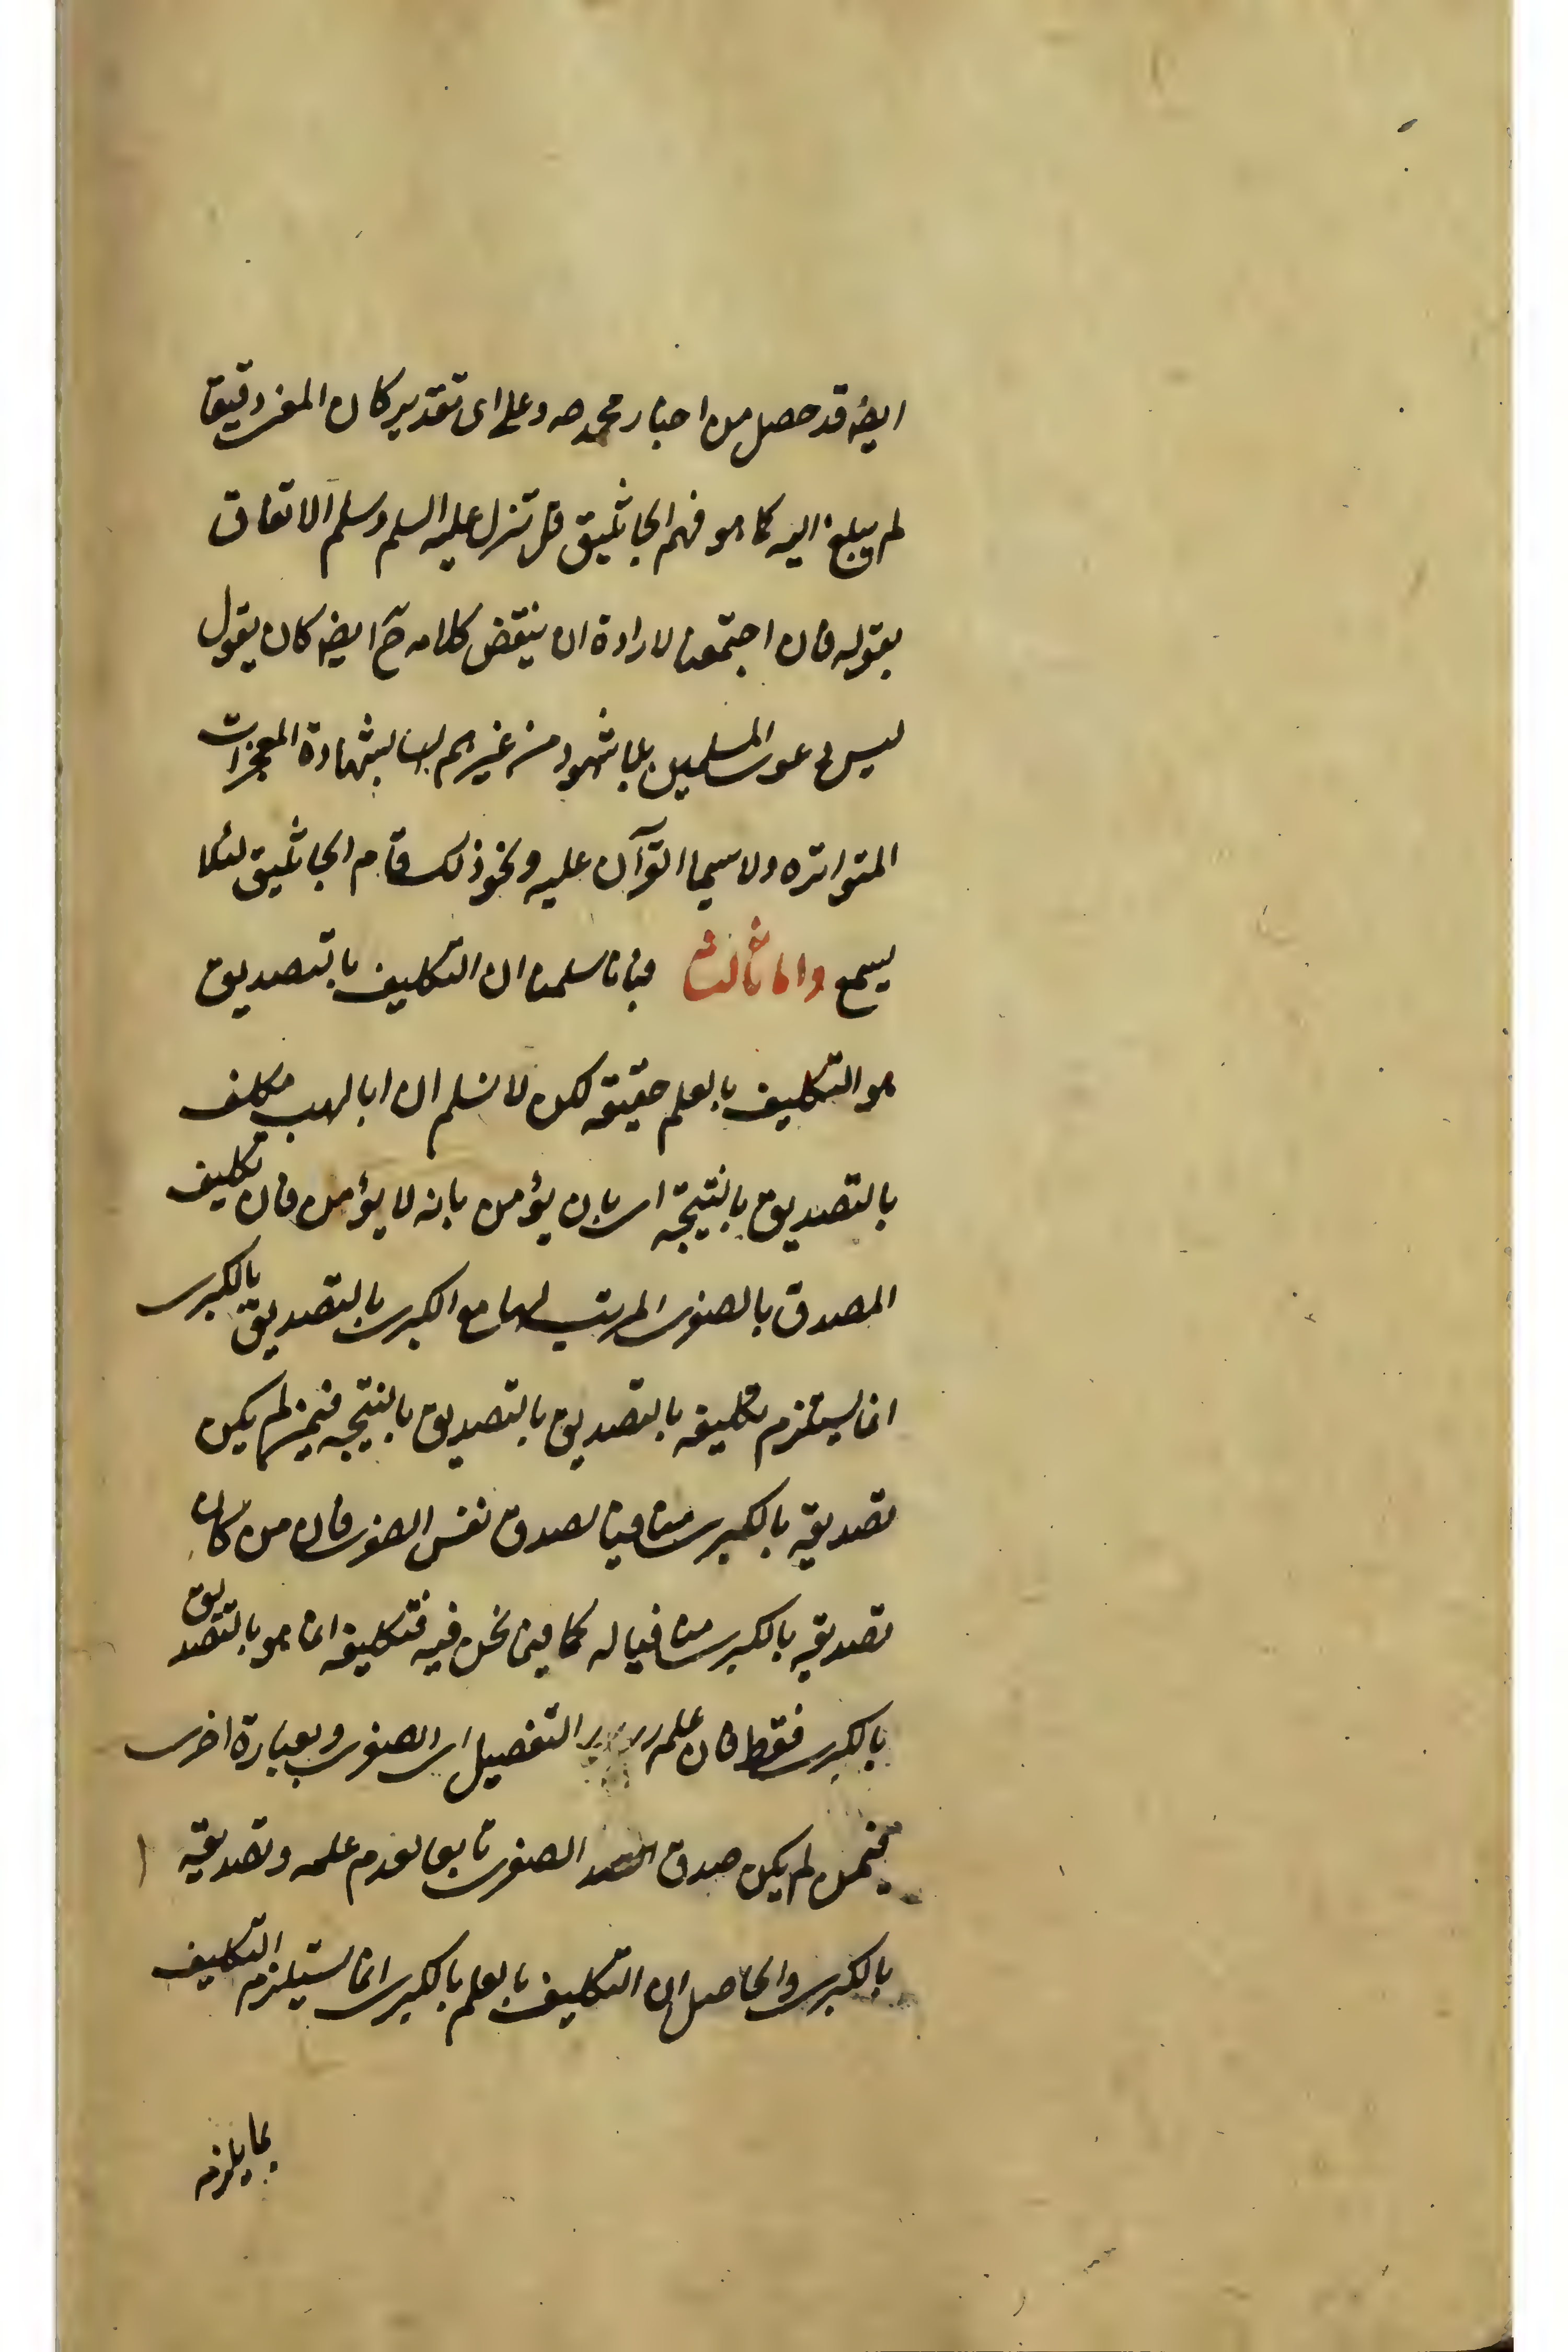 ايضہ قد حصل من اخبار محمد صہ و على اى تقدير كان المغر دقيقا
لم يبلغ اليه كما هو فهم الجاثليق قل تنزل عليه السلم وسلم الاتفاق
بقوله فان اجتمعنا لارادة ان ينقض كلامه ح ايضہ كان يقول
ليس دعوى المسلمين بلا شهود من غيرهم لهنا لشهادة المعجزات
المتواتره ولا سيما القرآن عليه ونحو ذلك فقام الجاثليق لئلا
يسمع واما ثالثا فبانا سلمنا ان التكليف بالتصديق
هو التكليف بالعلم حقيقه لكن لا نسلم ان ابا لهب مكلف
بالتصديق بالنتيجة اى بان يؤمن بانه لا يؤمن فان تكليف
المصدق بالصغرى المرتب لها مع الكبرى بالتصديق بالكبرى
انما يستلزم تكليفه بالتصديق بالتصديق بالنتيجه فيمن لم يكن
تصديقه بالكبرى منافيا لصدق نفس الصغرى فان من كان
تصديقه بالكبرى منافيا له كما فيما نحن فيه فتكليفه انما هو بالتصديق
بالكبرى فقط فان علمه التفصيل اى الصغرى وبعبارة اخرى
فيمن لم يكن صدق الصغرى تابعا لعدم علمه وتصديقه
بالكبرى والحاصل ان التكليف بالعلم بالكبرى انما يستلزم التكليف
بما يلزمه